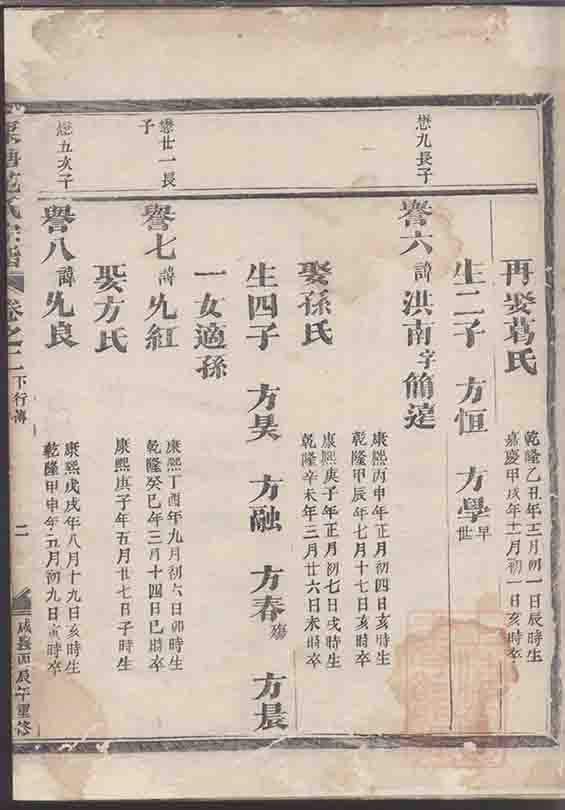 再娶葛氏
乾隆乙丑年十二月初一日辰時生
嘉慶甲戌年十一月初一日亥時卒
生二子 方恒 方學早世
懋九長子
譽六諱洪南字簡逹
康熙丙申年正月初四日亥時生
乾隆甲辰年七月十七日亥時卒
娶孫氏
康熙庚子年正月初七日戌時生
乾隆辛未年三月廿六日未時卒
生四子 方昊 方融 方春殤 方晨
一女適孫
懋廿一長子
譽七諱允紅
康熙丁酉年九月初六日卯時生
乾隆癸巳年三月十四日巳時卒
娶方氏
康熙庚子年五月廿七日子時生
懋五亥子
譽八諱允良
康熙戊戌年八月十九日亥時生
乾隆甲申年五月初九日寅時卒
氏宗譜 卷之二 下行傳 二 咸豐丙辰年重修